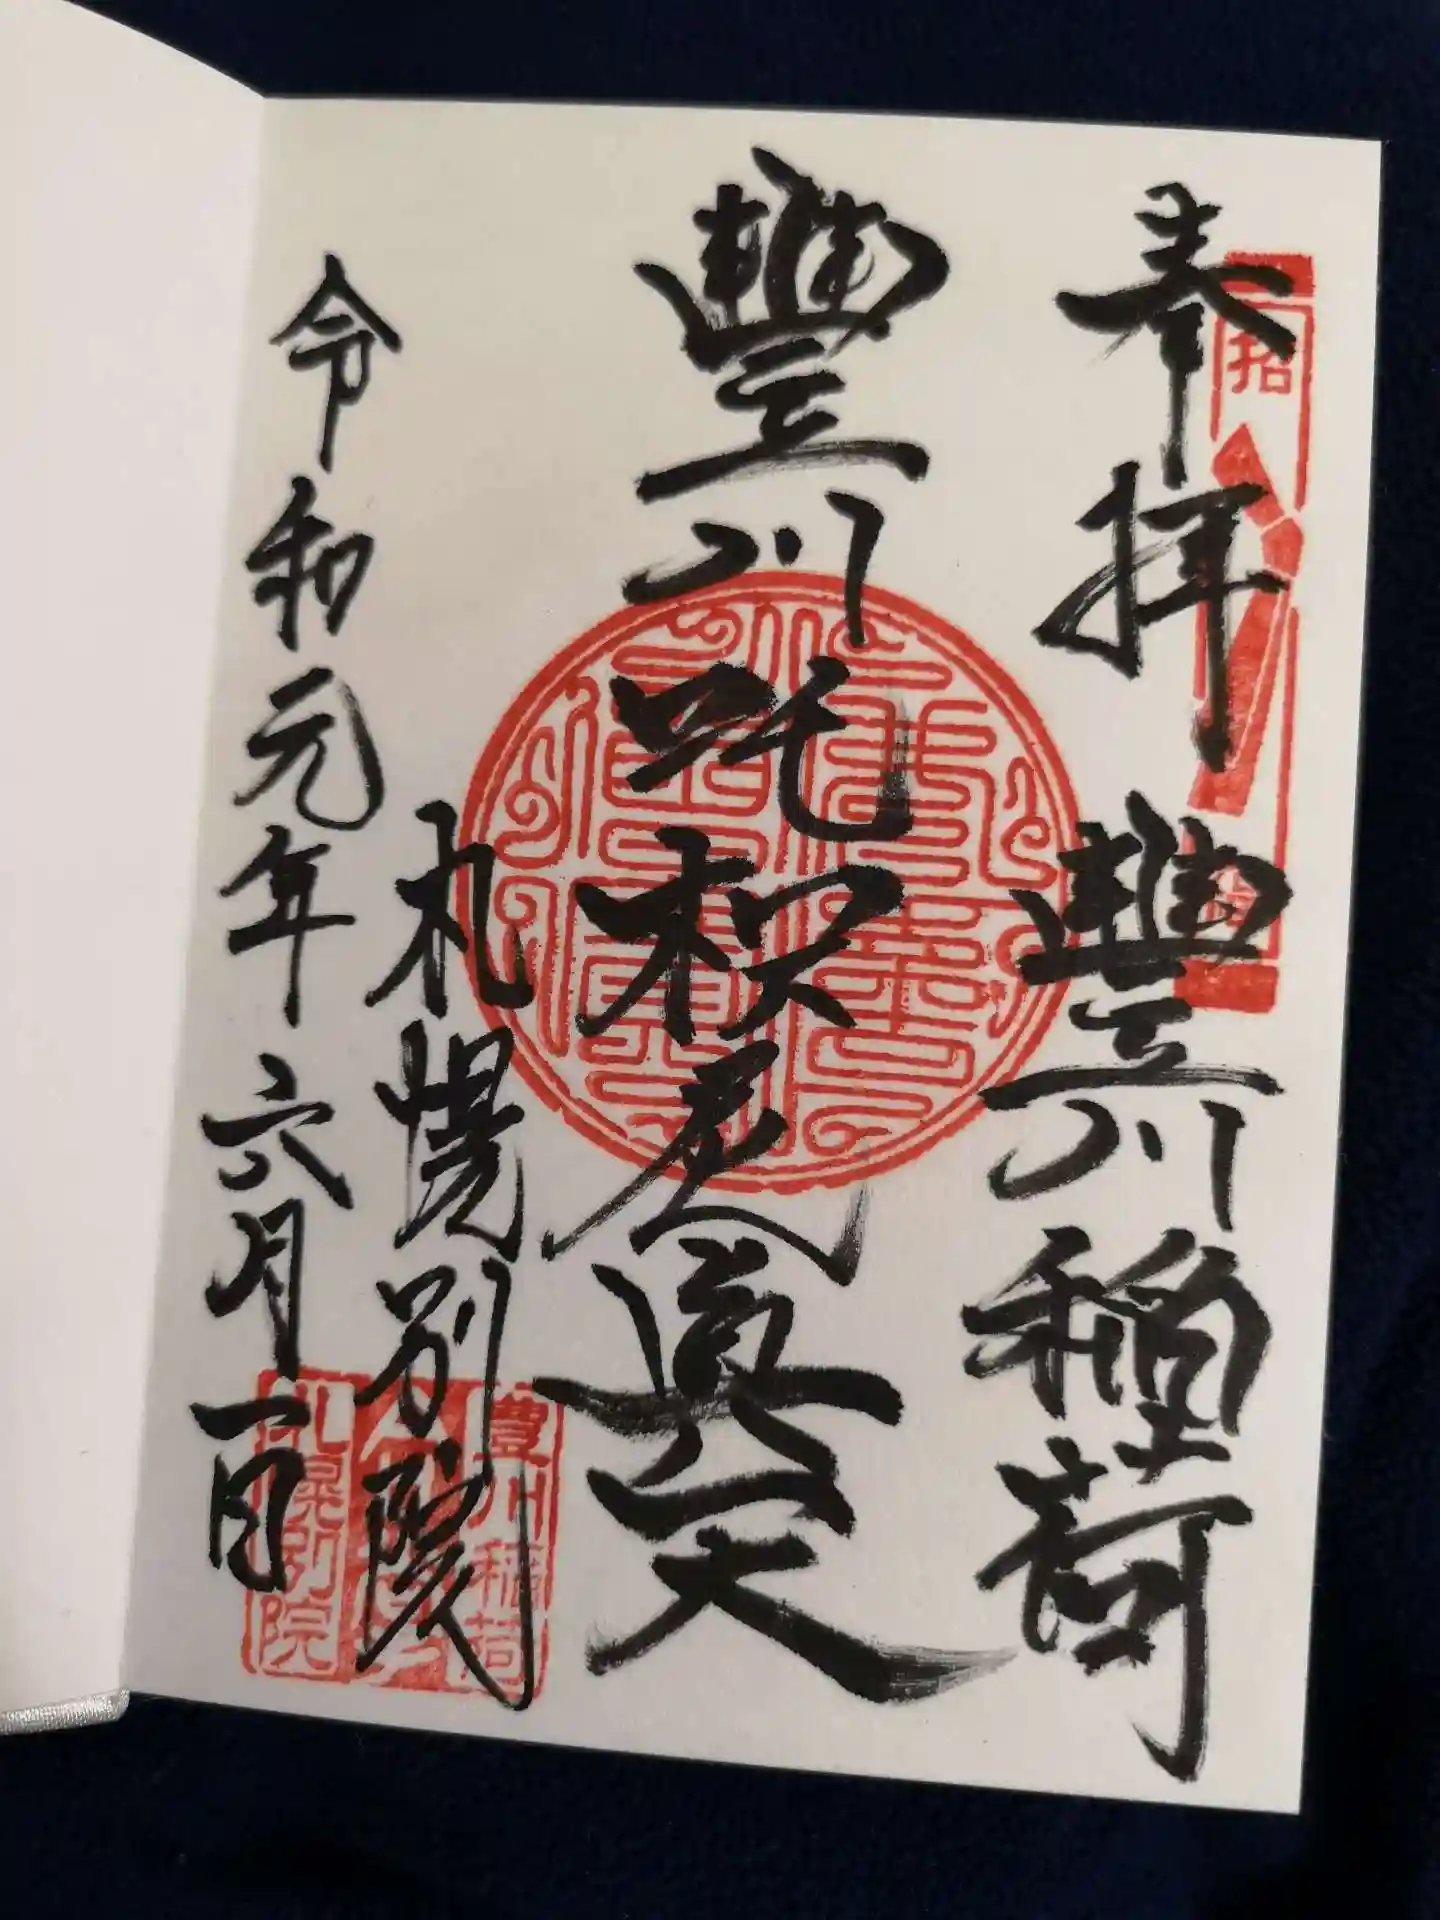 奉拝 豐川稲荷
豐川吒枳尼眞天
札幌別院
令和元年六月一日
招
豊川稲荷
札幌別院